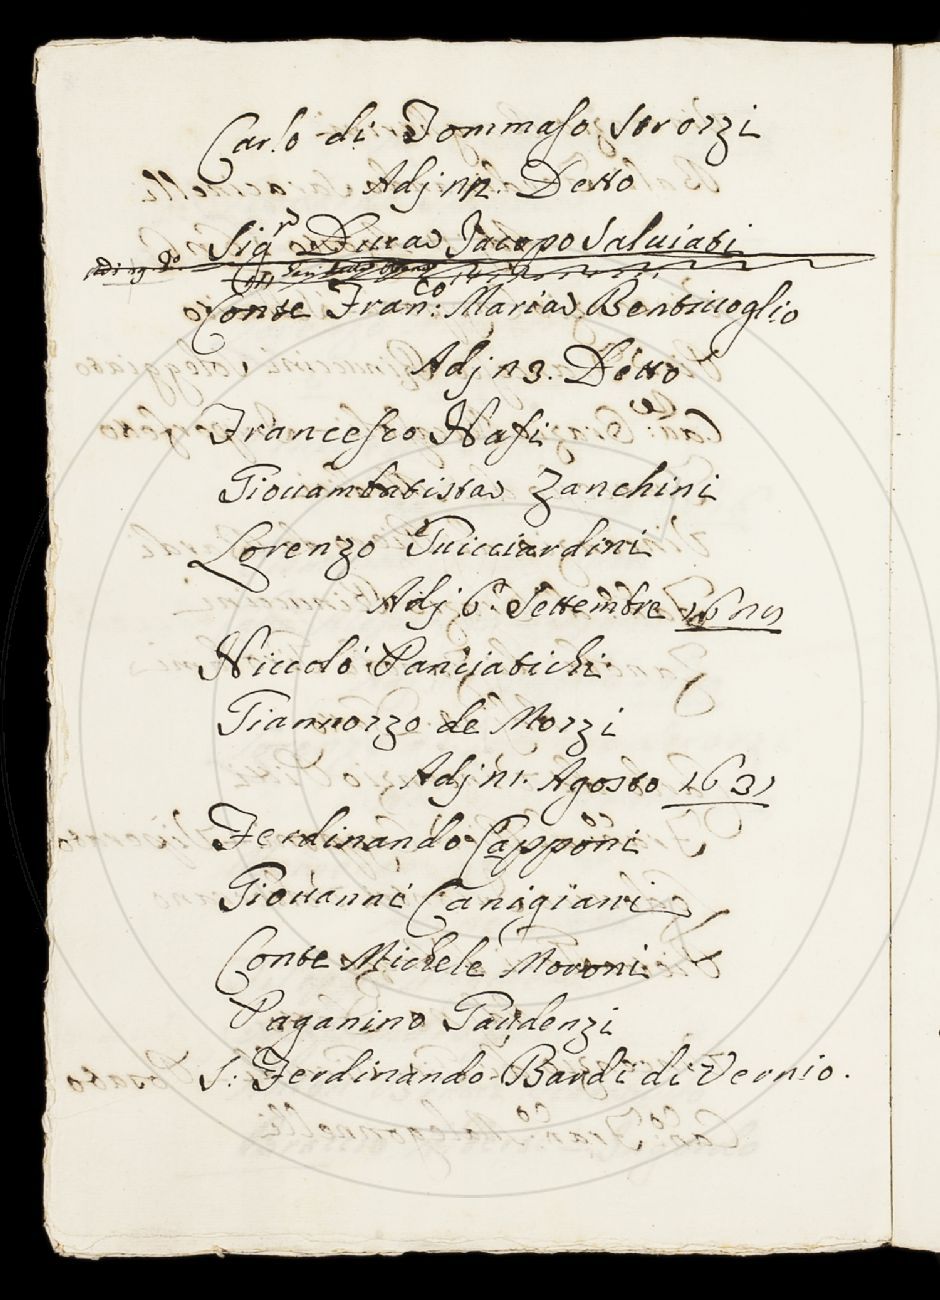 Carlo di Tommaso Strozzi
Adj 12. Detto
Sig.r Duca Jacopo Salviati
Conte Fran.co Maria Bentivoglio
Adj 13. Detto
Francesco Nasi
Giovambatista Zanchini
Lorenzo Guicciardini
Adj 6. Settembre
Niccolò Panciatichi
Giannozzo de Mozzi
Adj 11. Agosto 1631
Ferdinando Capponi
Giovanni Canigiani
Conte Michele Moroni
Paganino Gaudenzi
S: Ferdinando Bardi di Vernio.